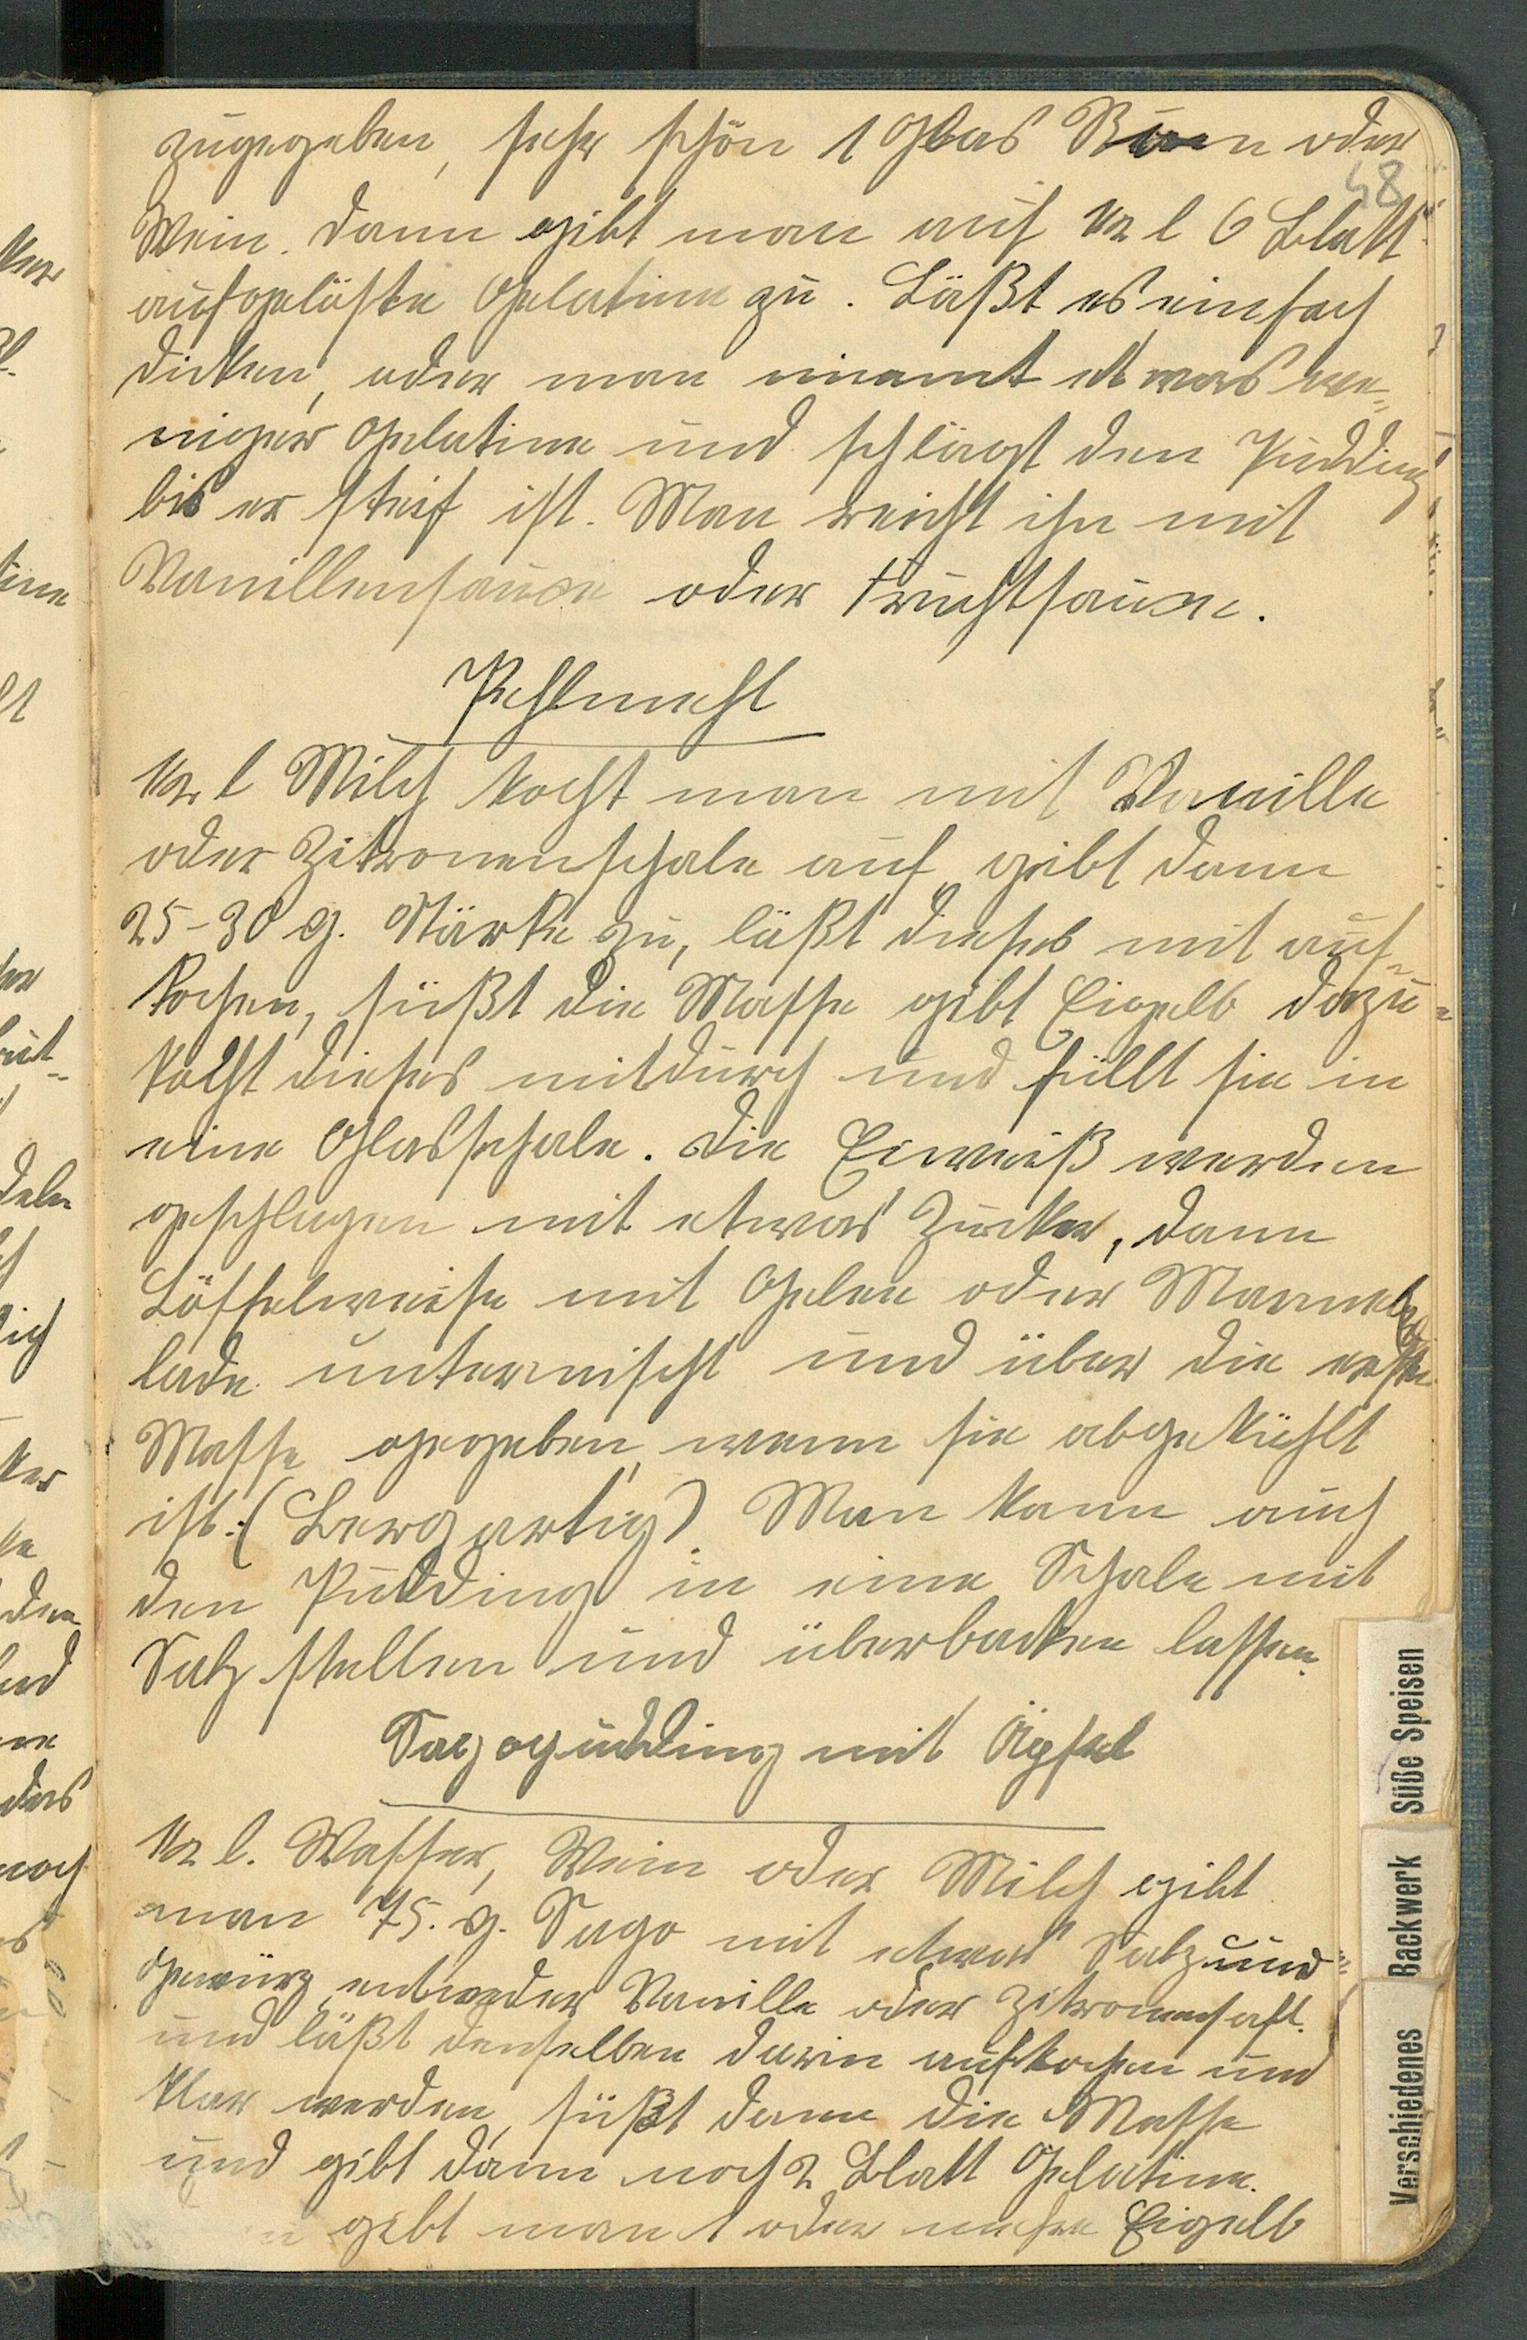 zugegeben, sehr schön 1 Glas Rum oder
48
Wein. Dann gibt man auf 1/2 l 6 Blatt
aufgelöste Gelatine zu. Läßt es einfach
dicken, oder man nimmt etwas we-
niger Gelatine und schlägt den Pudding
bis er steif ist. Man reicht ihn mit
Vanillensauce oder Fruchtsauce.
1/2 l Milch kocht man mit Vanille
oder Zitronenschale auf, gibt dann
25-30 g. Stärke zu, läßt dieses mit auf-
kochen, süßt die Masse gibt Eigelb dazu
kocht dieses mitdurch und füllt sie in
eine Glasschale. Die Eiweiß werden
geschlagen mit etwas Zucker, dann
Löffelweise mit Gelee oder Marme-
lade untermischt und über die erste
Masse gegeben, wenn sie abgekühlt
ist. (Bergartig) Man kann auch
den Pudding in eine Schale mit
Salz stellen und überbacken lassen.
Sagopudding mit Äpfel
1/2 l. Wasser, Wein oder Milch gibt
man 75. g. Sago mit etwas Salz und
Gewürz entweder Vanille oder Zitronensaft.
und läßt denselben darin aufkochen und
klar werden, süßt dann die Masse
und gibt dann noch 2 Blatt Gelatine.
gibt man 1 oder mehre Eigelb
Süße Speisen
Backwerk
Verschiedenes